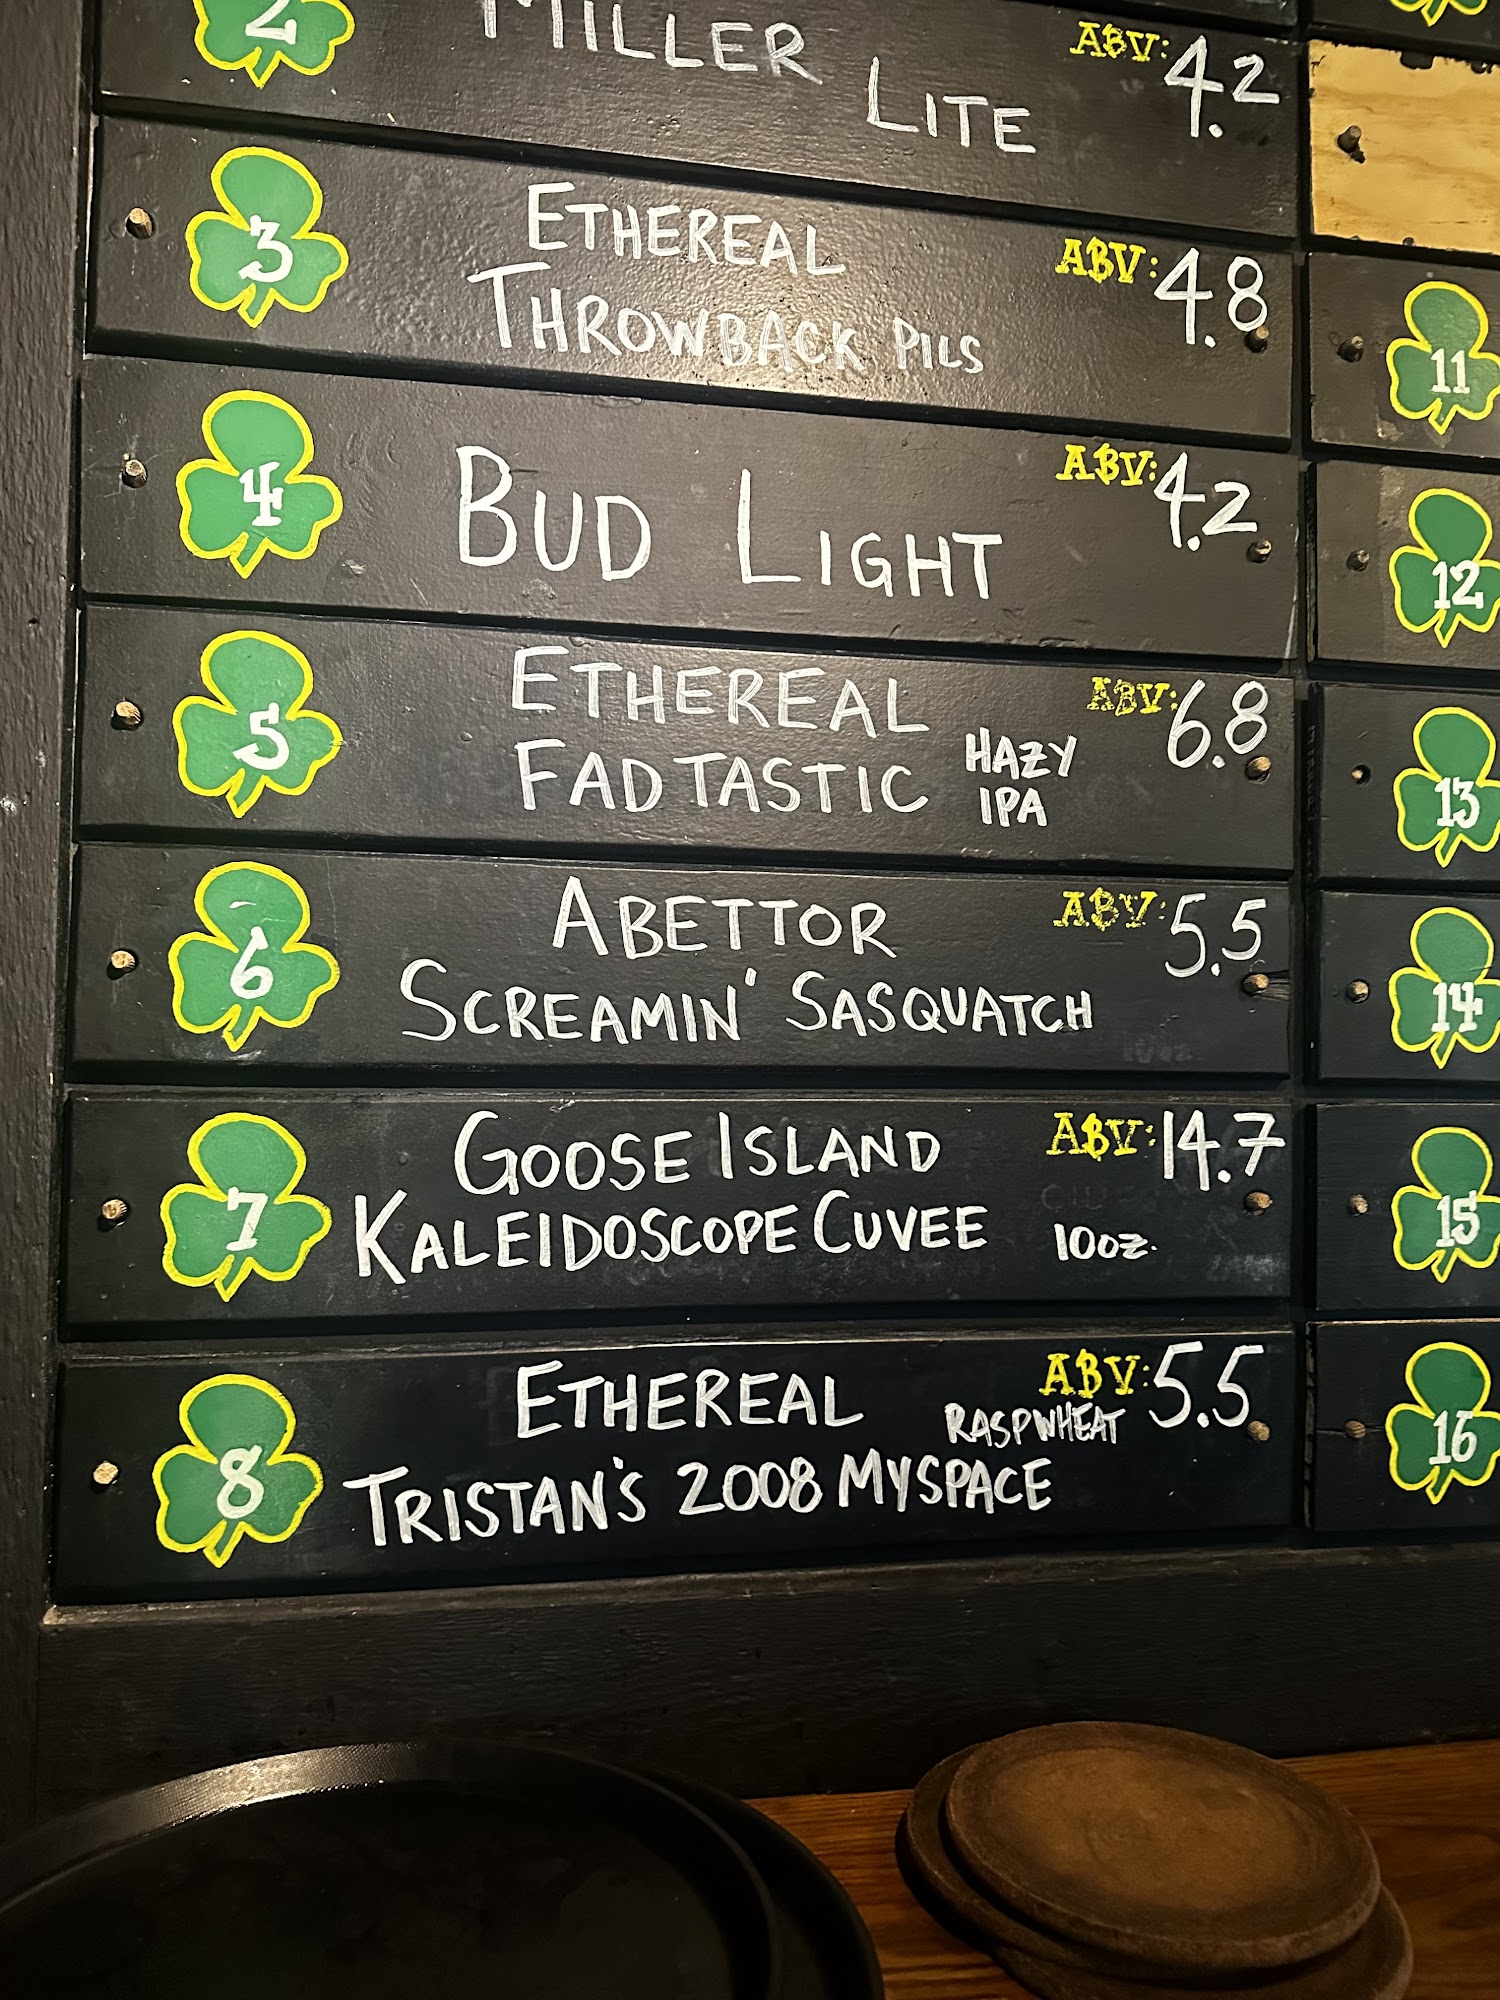 2
MILLER
LITE
ABV: 4.2
3
ETHEREAL
THROWBACK PILS
ABV: 4.8
4
BUD LIGHT
ABV: 4.2
5
ETHEREAL
FADTASTIC
HAZY
IPA
ABV: 6.8
6
ABETTOR
SCREAMIN' SASQUATCH
ABV: 5.5
7
GOOSE ISLAND
KALEIDOSCOPE CUVEE
ABV: 14.7
10oz.
8
ETHEREAL
TRISTAN'S 2008 MYSPACE
RASPWHEAT
ABV: 5.5
11
12
13
14
15
16